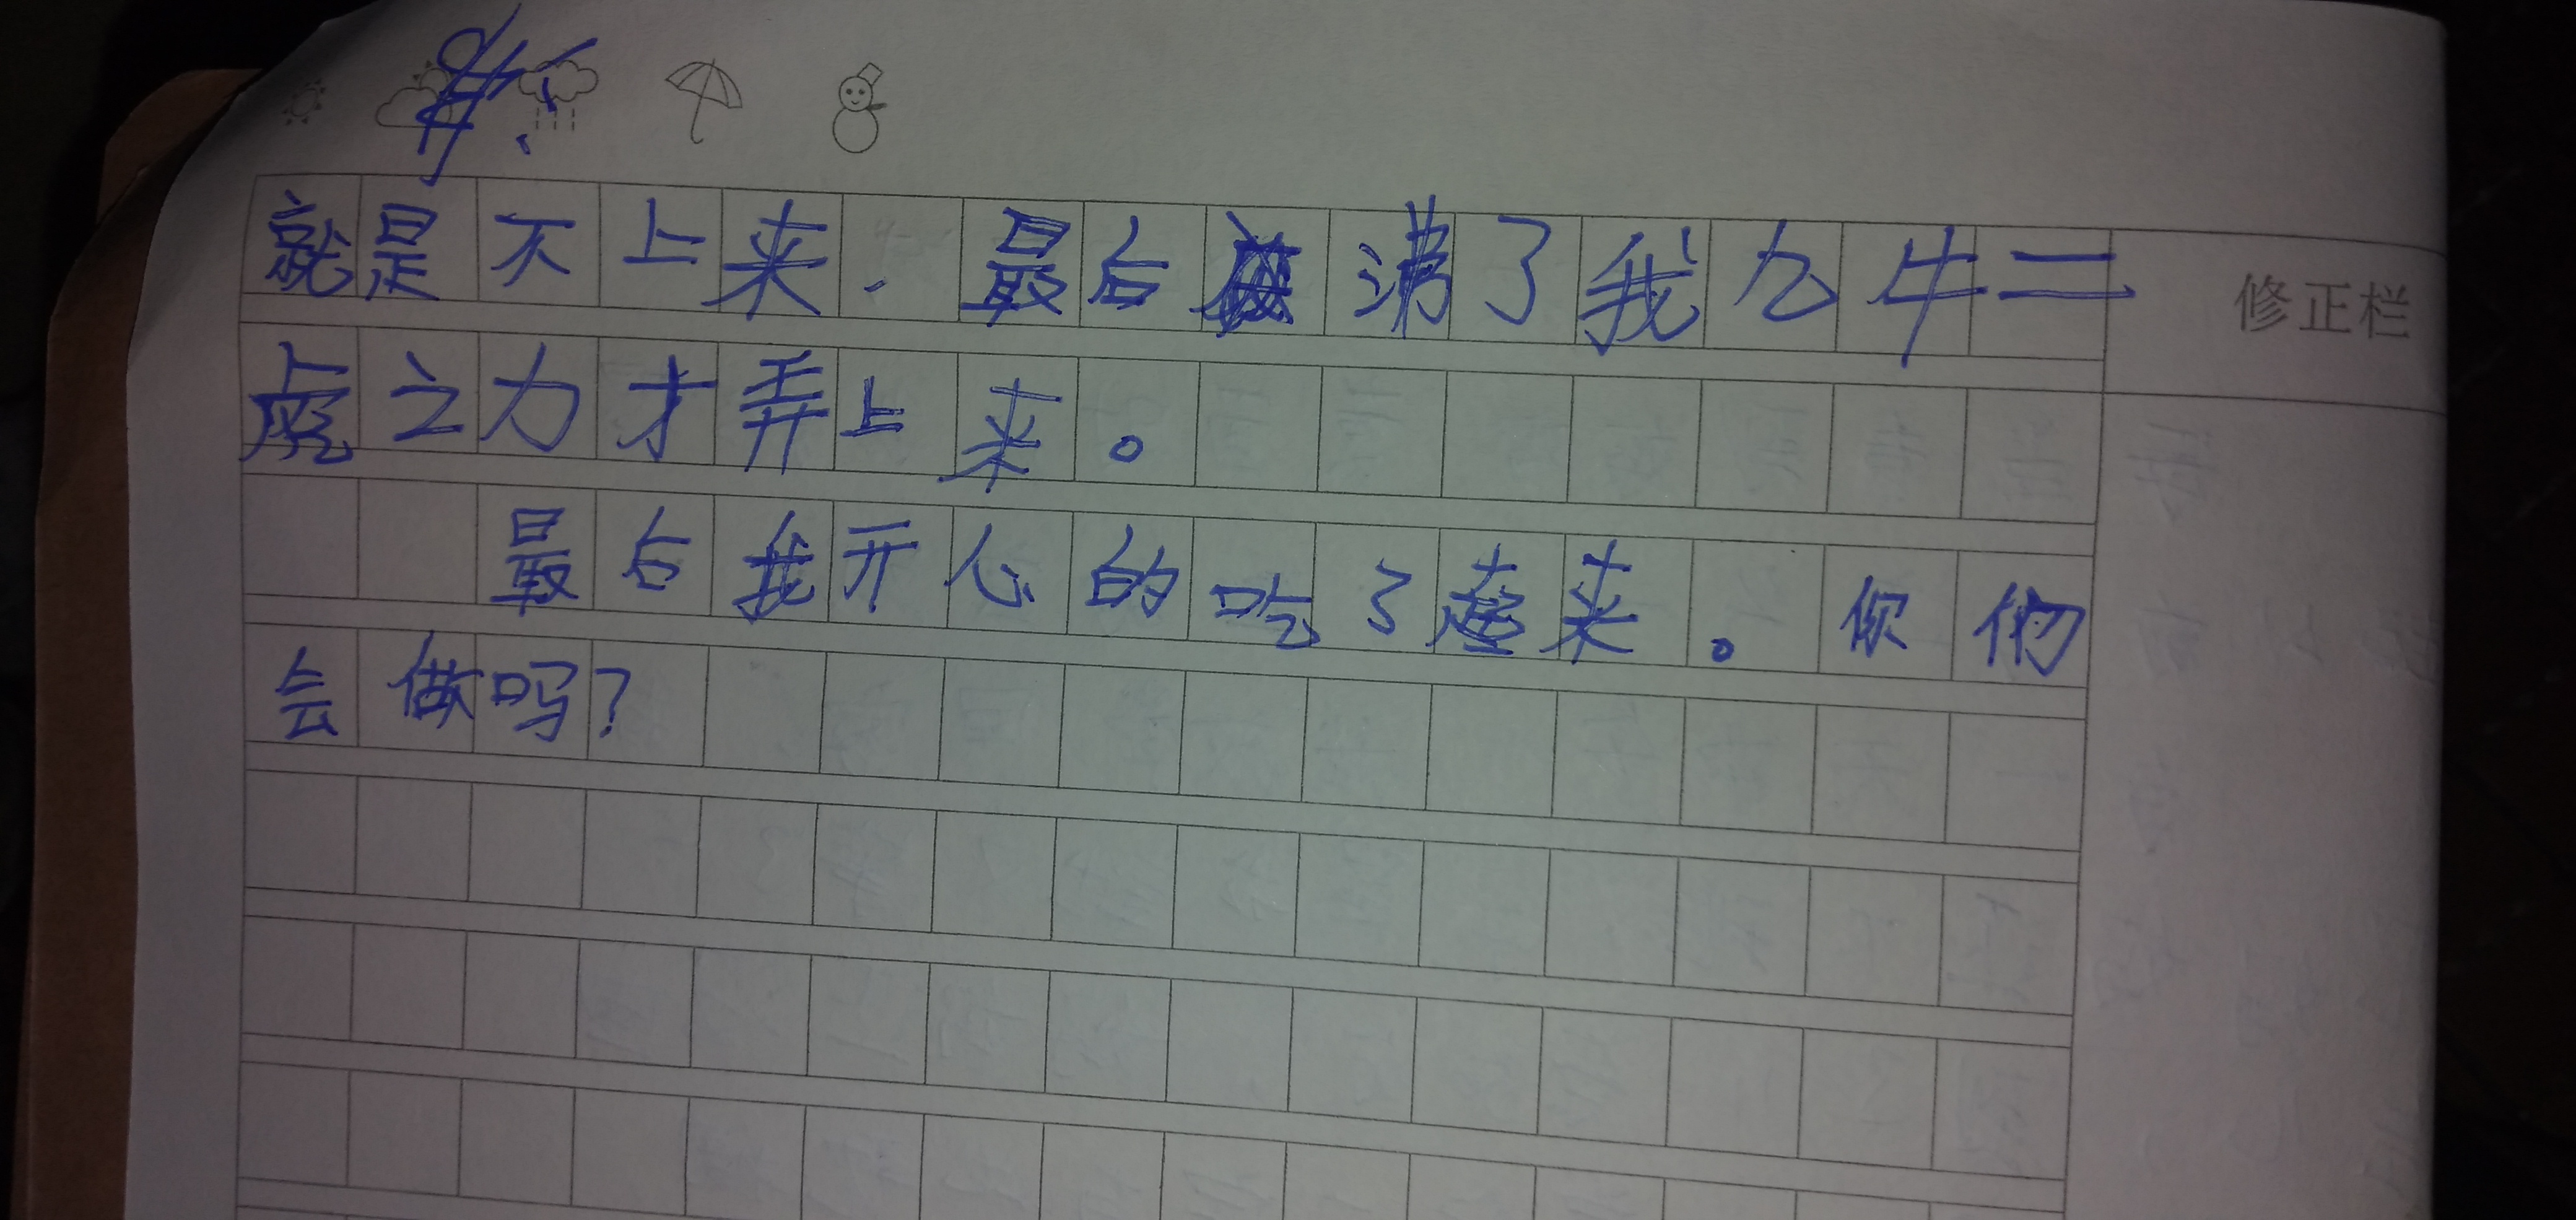 就是不上来.最后沸了我九牛二
虎之力才弄上来。
最后我开心的吃了起来。你们
会做吗?
修正栏